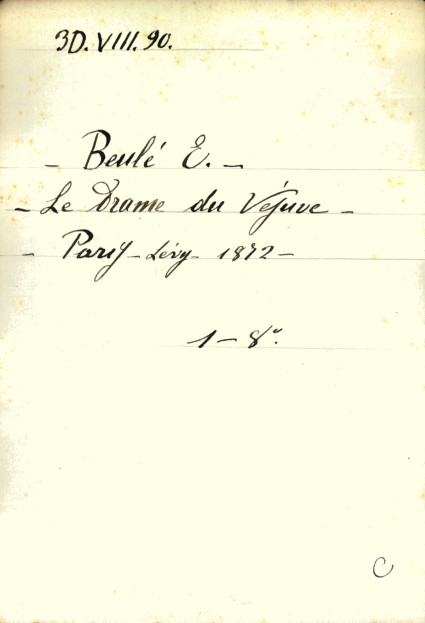 3D. VIII. 90.
- Beulé E. -
- Le Drame du Vésuve -
- Paris - Lévy - 1872 -
1 - 8°.
C